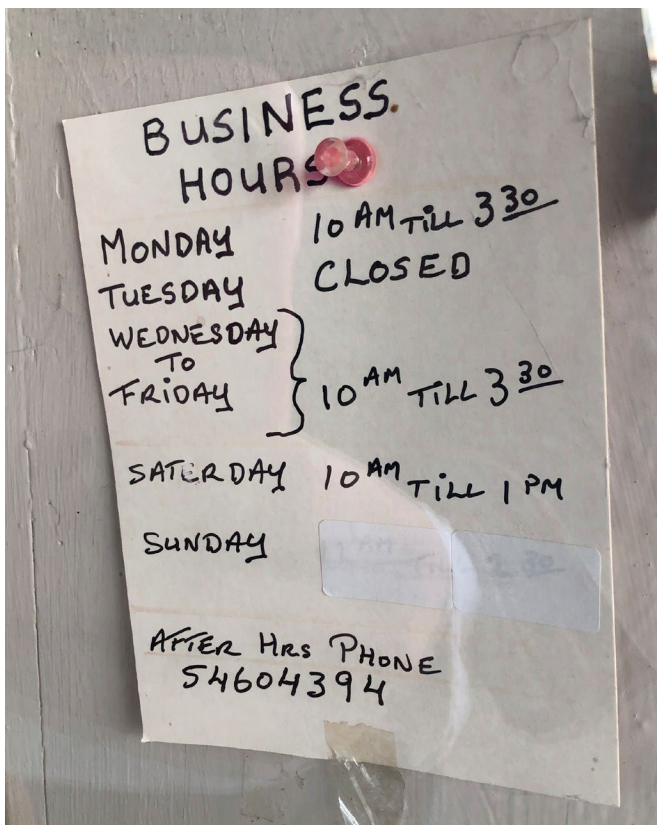 BUSINESS.
HOURS
MONDAY 10 AM TILL 3 30
TUESDAY CLOSED
WEDNESDAY
TO
FRIDAY 10 AM TILL 3 30
SATERDAY 10 AM TILL 1 PM
SUNDAY
AFTER HRS PHONE
54604394